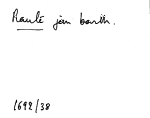 Raulé jean barth.
1692/38